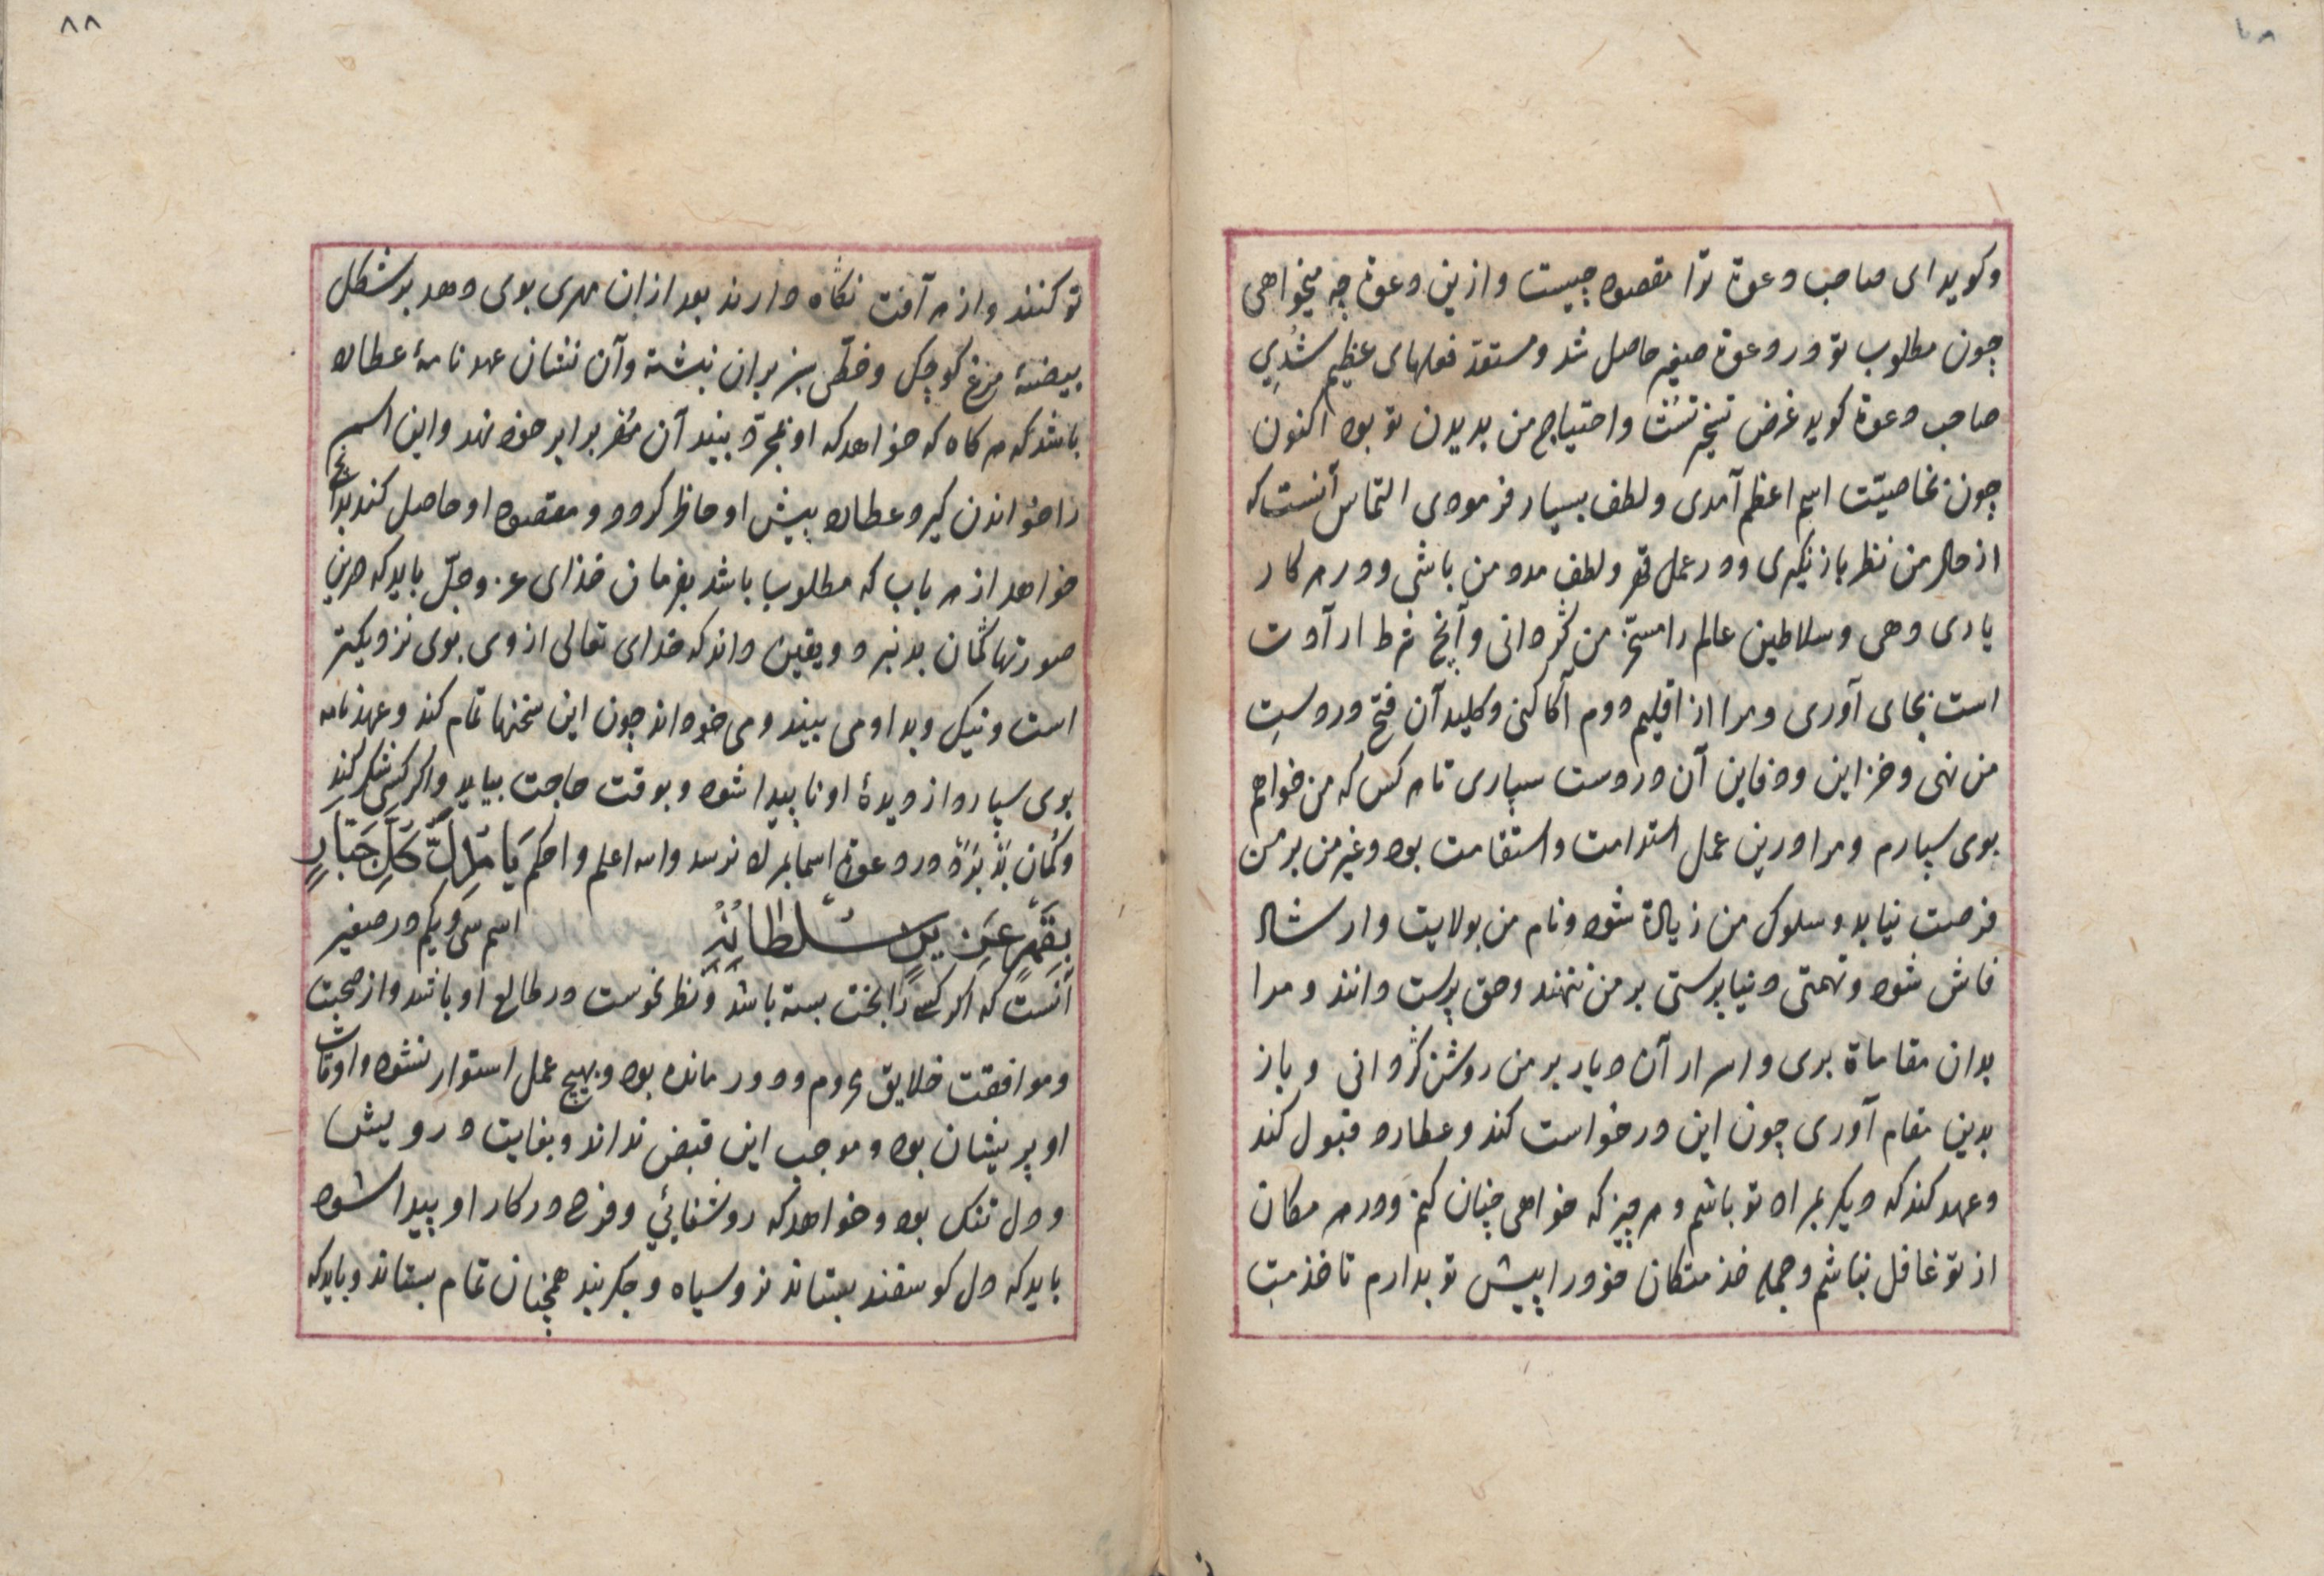 وکوید ای صاحب دعوة ترا مقصود چیست وازین دعوة چه میخواهی
چون مطلوب تو در دعوة صغیر حاصل شد ومستعد فعلهای عظیم شدی
صاحب دعوة کوید غرض تسخیر تست واحتیاج من بدیدن تو بود اکنون
چون بخاصیّت اسم اعظم آمدی ولطف بسیار فرمودی التماس آنست که
از حال من نظر باز نگیری ودر عمل قهر ولطف مدد من باشی ودر هر کار
یاری دهی وسلاطین عالم را مسخّر من کردانی وآنچ شرط ارادت
است بجای آوری ومرا از اقلیم دوم آکاه کنی وکلید آن فتح در دست
من نهی وخزاین ودفاین آن در دست سپاری تا هر کس که من خواهم
بوی سپارم ومرا درین عمل استدامت واستقامت بود وغیر من بر من
فرصت نیابد وسلوک من زیادة شود ونام من بولایت وارشاد
فاش شود وتهمتی دنیا پرستی بر من ننهند وحق پرست دانند ومرا
بدان مقاماة بری واسرار آن دیار بر من روشن کردانی وباز
بدین مقام آوری چون این درخواست کند وعطارد قبول کند
وعهد کند که دیکر همراه تو باشم وهر چیز که خواهی چنان کنم ودر هر مکان
از تو غافل نباشم وجمله خدمتکان خود را پیش تو بدارم تا خدمت
٨٨
تو کنند واز هر آفت نکاه دارند بعد ازان مهری بوی دهد بر شکل
بیضهٔ مرغ کوچک وخطّی سبز بران نبشته وآن نشان عهد نامهٔ عطارد
باشد که هر کاه که خواهد که او بمجرد بیند آن مهر برابر خود نهد واین اسم
را خواندن کیرد عطارد پیش او حاظر کردد ومقصود او حاصل کند بدانچ
خواهد از هر باب که مطلوب باشد بفرمان خذای عزّ وجلّ باید که درین
صورتها کمان بد نبرد ویقین داند که خدای تعالی از وی بوی نزدیکتر
است ونیک وبد او می بیند ومی خواند چون این سخنها تمام کند وعهد نامه
بوی سپارد از دیدهٔ او ناپیدا شود وبوقت حاجت بیاید واکر کسی شک کند
وکمان بد برد در دعوة اسما بمراد نرسد والله اعلم واحکم یَا مُذِلَّ کُلِّ جَبَّارٍ
بِقَهْرِ عَزِیزِ سُلْطَانِهِ اسم سی ویکم در صغیر
آنست که اکر کسی را بخت بسته باشد ونظر نحوست در طالع او باشد واز صحبت
وموافقت خلایق محروم ودور مانده بود وبهیچ عمل استوار نشود واوقات
او پریشان بود وموجب این قبض نداند وبغایت درویش
ودل تنک بود وخواهد که روشنائی وفرح در کار او پیدا شود
باید که دل کوسفند بستاند نر وسیاه وجکر بند همچنان تمام بستاند وباید که